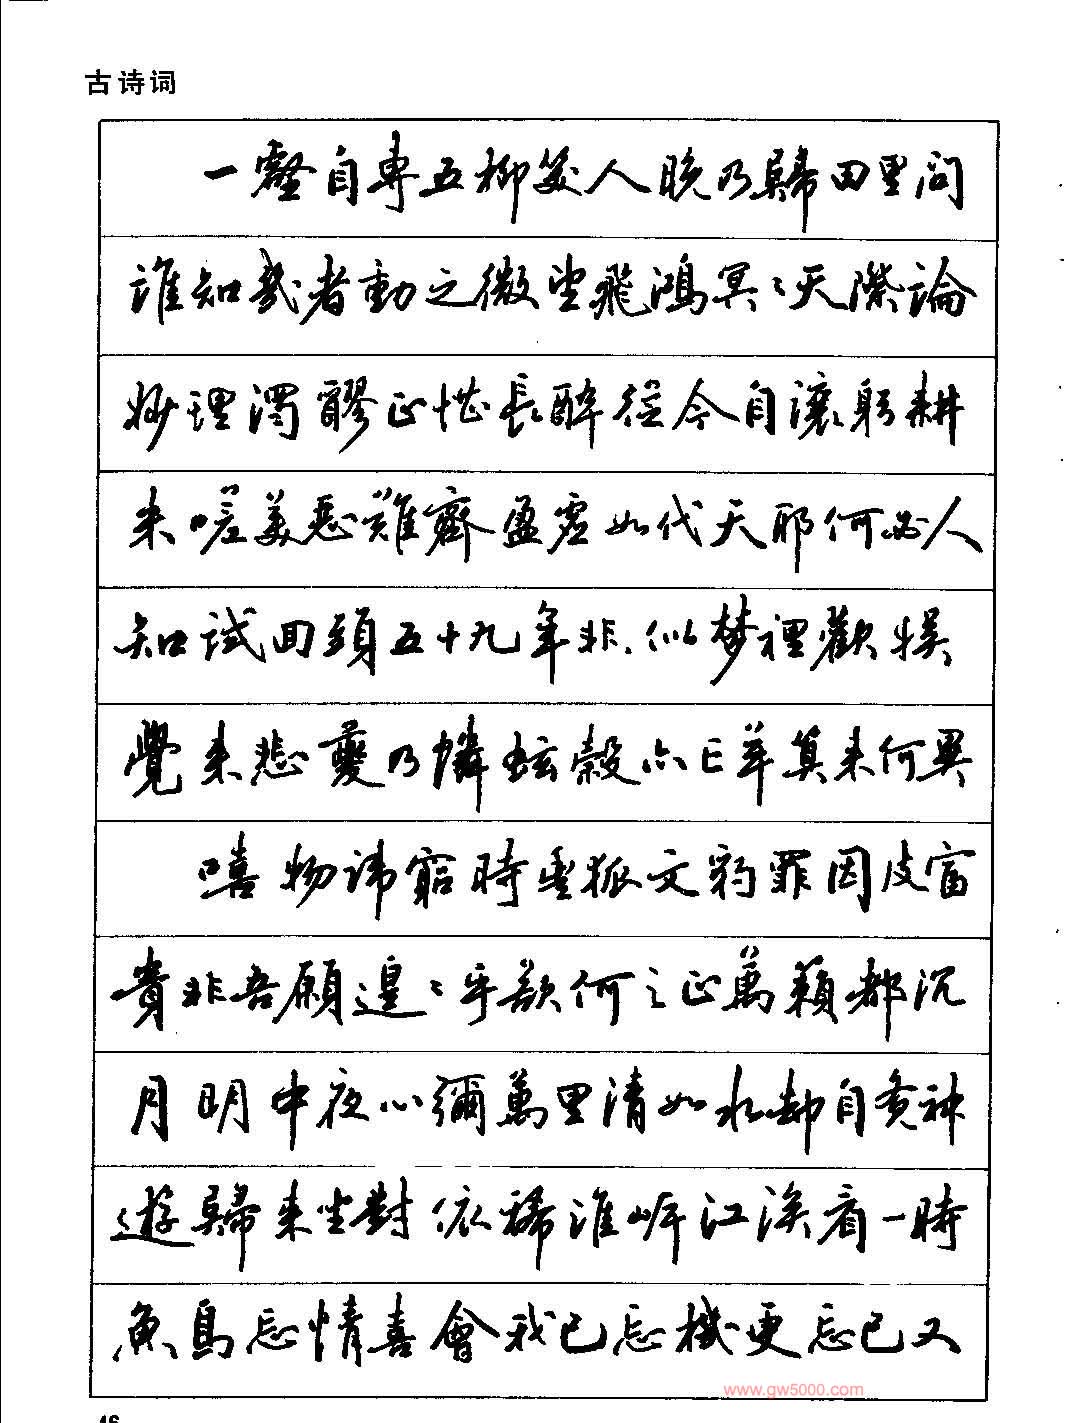 古诗词
一壑自專五柳笑人晚乃歸田里問
誰知幾者動之微望飛鴻冥冥天際論
妙理濁醪正堪長醉從今自釀躬耕
米嗟美惡難齊盈虛如代天耶何必人
知試回頭五十九年非似梦裡歡娛
覺来悲夔乃憐蚿穀亦亡羊算来何異
嘻物諱窮時豐狐文豹罪因皮富
貴非吾願遑遑乎欲何之正萬籟都沉
月明中夜心彌萬里清如水却自覺神
遊歸来坐對依稀淮岸江涘看一時
魚鳥忘情喜會我已忘機更忘己又
www.gw5000.com
46